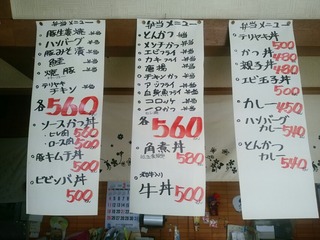 弁当メニュー
豚生姜焼 弁当
ハンバーグ 弁当
豚みそ漬 弁当
鮭 弁当
焼豚 弁当
テリヤキ
チキン 弁当
各560
ソースかつ丼
ヒレ肉 560
ロース肉 500
豚キムチ丼
500
ビビンバ丼
500
弁当メニュー
とんかつ 弁当
メンチかつ 弁当
エビフライ 弁当
カキフライ 弁当
唐揚 弁当
チキンかつ 弁当
アジフライ 弁当
白身魚フライ 弁当
コロッケ 弁当
一口かつ 弁当
各560
角煮丼
580
牛丼 500
弁当メニュー
テリヤキ丼
500
かつ丼 480
親子丼 480
エビ玉子丼
500
カレー 450
ハンバーグ
カレー 540
とんかつ
カレー 540